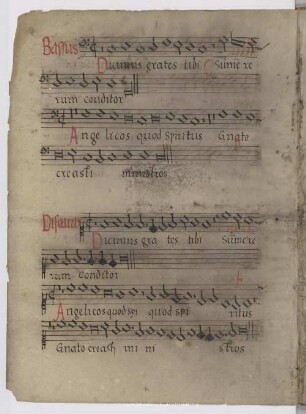 Bassus
Dicimus grates tibi Summe re
rum conditor
Angelicos quod Spiritus Gnato
creasti ministros
Discantus
Dicimus gra tes tibi Sum̄e re
rum Conditor
Angelicos quod spi quod spi ritus
Gnato creasti mi ni stros